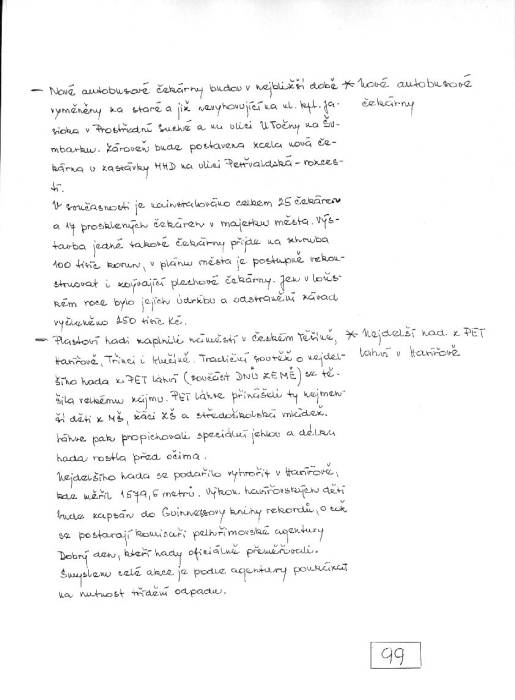 – Nové autobusové čekárny budou v nejbližší době
vyměněny na staré a již nevyhovující na ul. kpt. Ja-
sioka v Prostřední Suché a na ulici U Točny na Šu-
mbarku. Zároveň bude postavena zcela nová če-
kárna u zastávky MHD na ulici Petřvaldská - rozces-
tí.
V současnosti je nainstalováno celkem 25 čekáren
a 17 prosklených čekáren v majetku města. Výs-
tavba jedné takové čekárny přijde na zhruba
100 tisíc korun, v plánu města je postupně rekon-
struovat i zbývající plechové čekárny. Jen v loňs-
kém roce bylo jejich údržbu a odstranění závad
vyčleněno 250 tisíc Kč.
– Plastoví hadi zaplnili náměstí v Českém Těšíně,
Havířově, Třinci i Hlučíně. Tradiční soutěž o nejdel-
šího hada z PET lahví (součást DNŮ ZEMĚ) se tě-
šila velkému zájmu. PET láhve přinášely ty nejmen-
ší děti z MŠ, žáci ZŠ a středoškolská mládež.
Láhve pak propichovali speciální jehlou a délka
hada rostla před očima.
Nejdelšího hada se podařilo vytvořit v Havířově,
kde měřil 1579,6 metrů. Výkon havířovských dětí
bude zapsán do Guinnessovy knihy rekordů, o což
se postarají komisaři pelhřimovské agentury
Dobrý den, kteří hady oficiálně přeměřovali.
Smyslem celé akce je podle agentury poukázat
na nutnost třídění odpadu.
* Nové autobusové
čekárny
* Nejdelší had z PET
lahví v Havířově
99